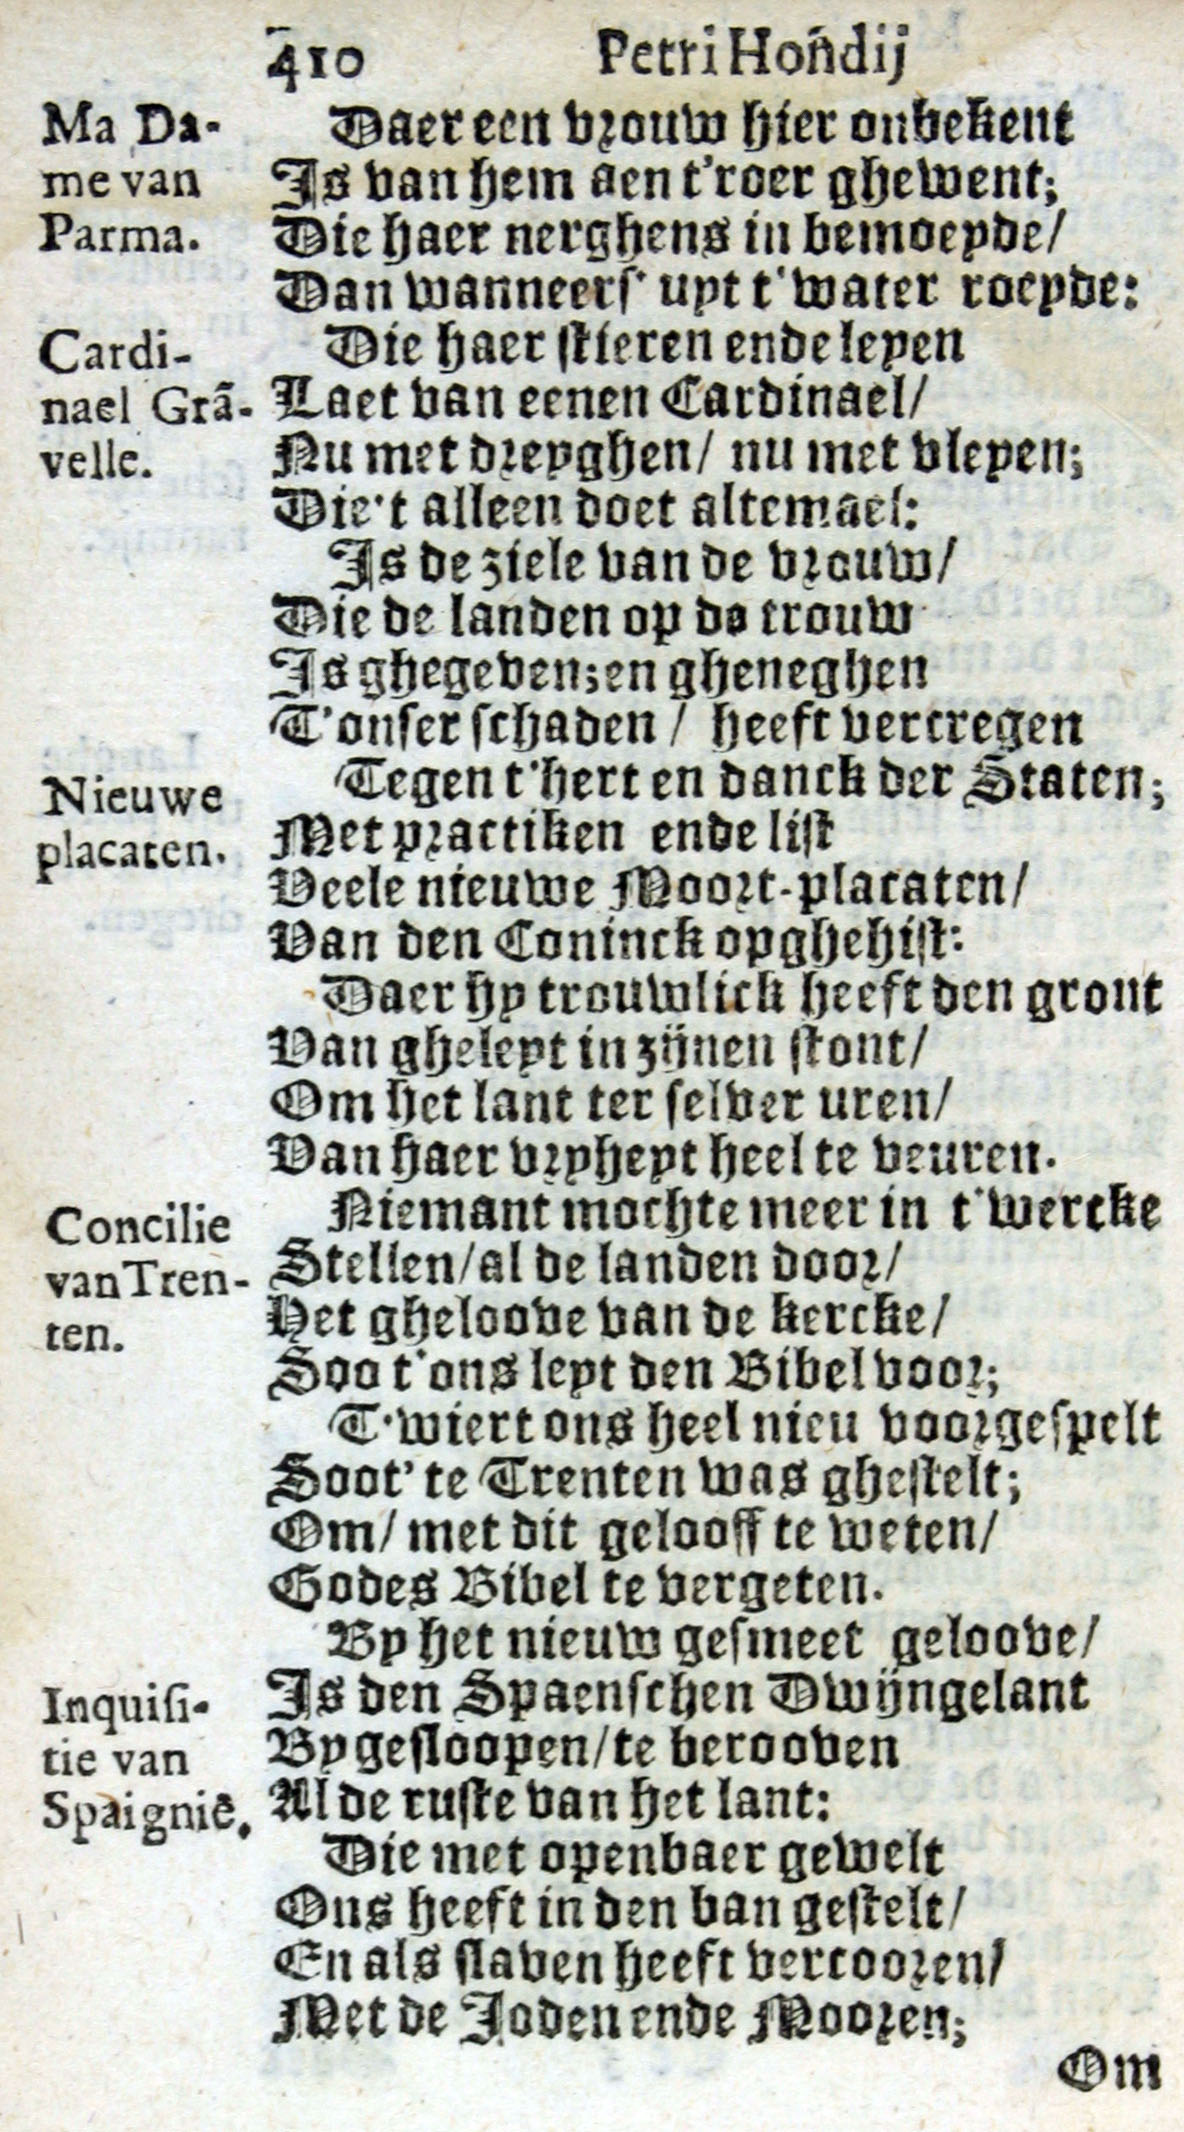 410 Petri Hoñdij
Ma Da-
me van
Parma.
Daer een vrouw hier onbekent
Is van hem aen t'roer ghewent;
Die haer nerghens in bemoeyde/
Dan wanneers' uyt t'water roeyde:
Cardi-
nael Grã-
velle.
Die haer stieren ende leyen
Laet van eenen Cardinael/
Nu met dreyghen/ nu met vleyen;
Die't alleen doet altemael:
Is de ziele van de vrouw/
Die de landen op de trouw
Is ghegeven; en gheneghen
T'onser schaden / heeft vercregen
Nieuwe
placaten.
Tegen t'hert en danck der Staten;
Met practiken ende list
Veele nieuwe Moort-placaten/
Van den Coninck opghehist:
Daer hy trouwlick heeft den gront
Van gheleyt in zijnen stont/
Om het lant ter selver uren/
Van haer vryheyt heel te veuren.
Concilie
van Tren-
ten.
Niemant mochte meer in t'wercke
Stellen/ al de landen door/
Het gheloove van de kercke/
Soo t'ons leyt den Bibel voor;
T'wiert ons heel nieu voorgespelt
Soot' te Trenten was ghestelt;
Om/ met dit gelooff te weten/
Godes Bibel te vergeten.
By het nieuw gesmeet geloove/
Inquisi-
tie van
Spaigniẽ.
Is den Spaenschen Dwijngelant
By gesloopen/ te berooven
Al de ruste van het lant:
Die met openbaer gewelt
Ons heeft in den ban gestelt/
En als slaven heeft vercooren/
Met de Joden ende Mooren;
Om